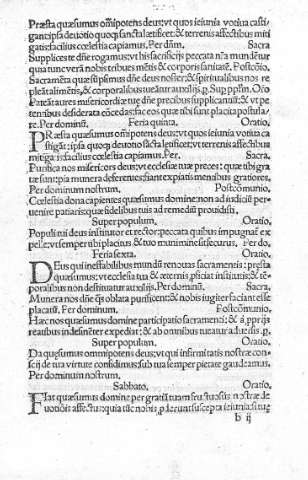 Præsta quæsumus omīpotens deus: vt quos ieiunia votiua casti
gant: ipsa deuotio quoq; sanctæ lætificet: & terrenis affectibus miti
gatis: facilius cœlestia capiamus. Per dn̄m. Sacra
Supplices te dn̄e rogamus: vt his sacrificiis peccata nr̄a mundētur
quia tunc verā nobis tribues mētis & corporis sanitatē. Postcōio.
Sacramēta quæ sūpsimus deus noster: & spiritualibus nos re
pleāt alimētis, & corporalibus tueātur auxiliis. Oīo
Pateāt aures misericordiæ tuæ dn̄e precibus supplicantiū: & vt pe
tentibus desiderata cōcedas: fac eos quæ tibi sunt placita postula/
re. Per dominū. Feria quinta. Oratio,
PRæsta quæsumus omīpotens deus: vt quos ieiunia votiua ca
stigāt: ipsa quoq; deuotio sācta lætificet: vt terrenis affectibus
mitigatis: facilius cœlestia capiamus. Per. Sacra
Purifica nos misericors deus: vt ecclesiæ tuæ preces: quæ tibi gra
tæ sunt: pia munera deferentes: fiant expiatis mentibus gratiores,
Per dominum nostrum. Postcōmunio,
Cœlestia dona capientes quæsumus domine: non ad iudiciū per
uenire patiaris: quæ fidelibus tuis ad remediū prouidisti.
Super populum, Oratio,
Populi tui deus institutor & rector: peccata quibus impugnat̄ ex
pelle: vt semper tibi placitus: & tuo munimine sit securus. Per do,
Feria sexta. Oratio,
DEus qui ineffabilibus mundū renouas sacramentis: præsta
quæsumus: vt ecclesia tua & æternis pficiat institutis: & tē
poralibus non destituatur auxiliis. Per dominū. Sacra,
Munera nos dn̄e q̄s oblata purificent: & nobis iugiter faciant esse
placatū. Per dominum, Postcōmunio,
Hæc nos quæsumus domine participatio sacramenti: & a ppriis
reatibus indesinēter expediat: & ab omnibus tueatur aduersis.
Super populum, Oratio
Da quæsumus omnipotens deus: vt qui infirmitatis nostræ con-
scij de tua virtute confidimus: sub tua semper pietate gaudeamus.
Per dominum nostrum.
Sabbato, Oratio,
FIat quæsumus domine per gratiā tuam fructuosus nostræ de
uotionis affectus: quia tūc nobis pderunt suscepta ieiunia: si tuæ
b ij